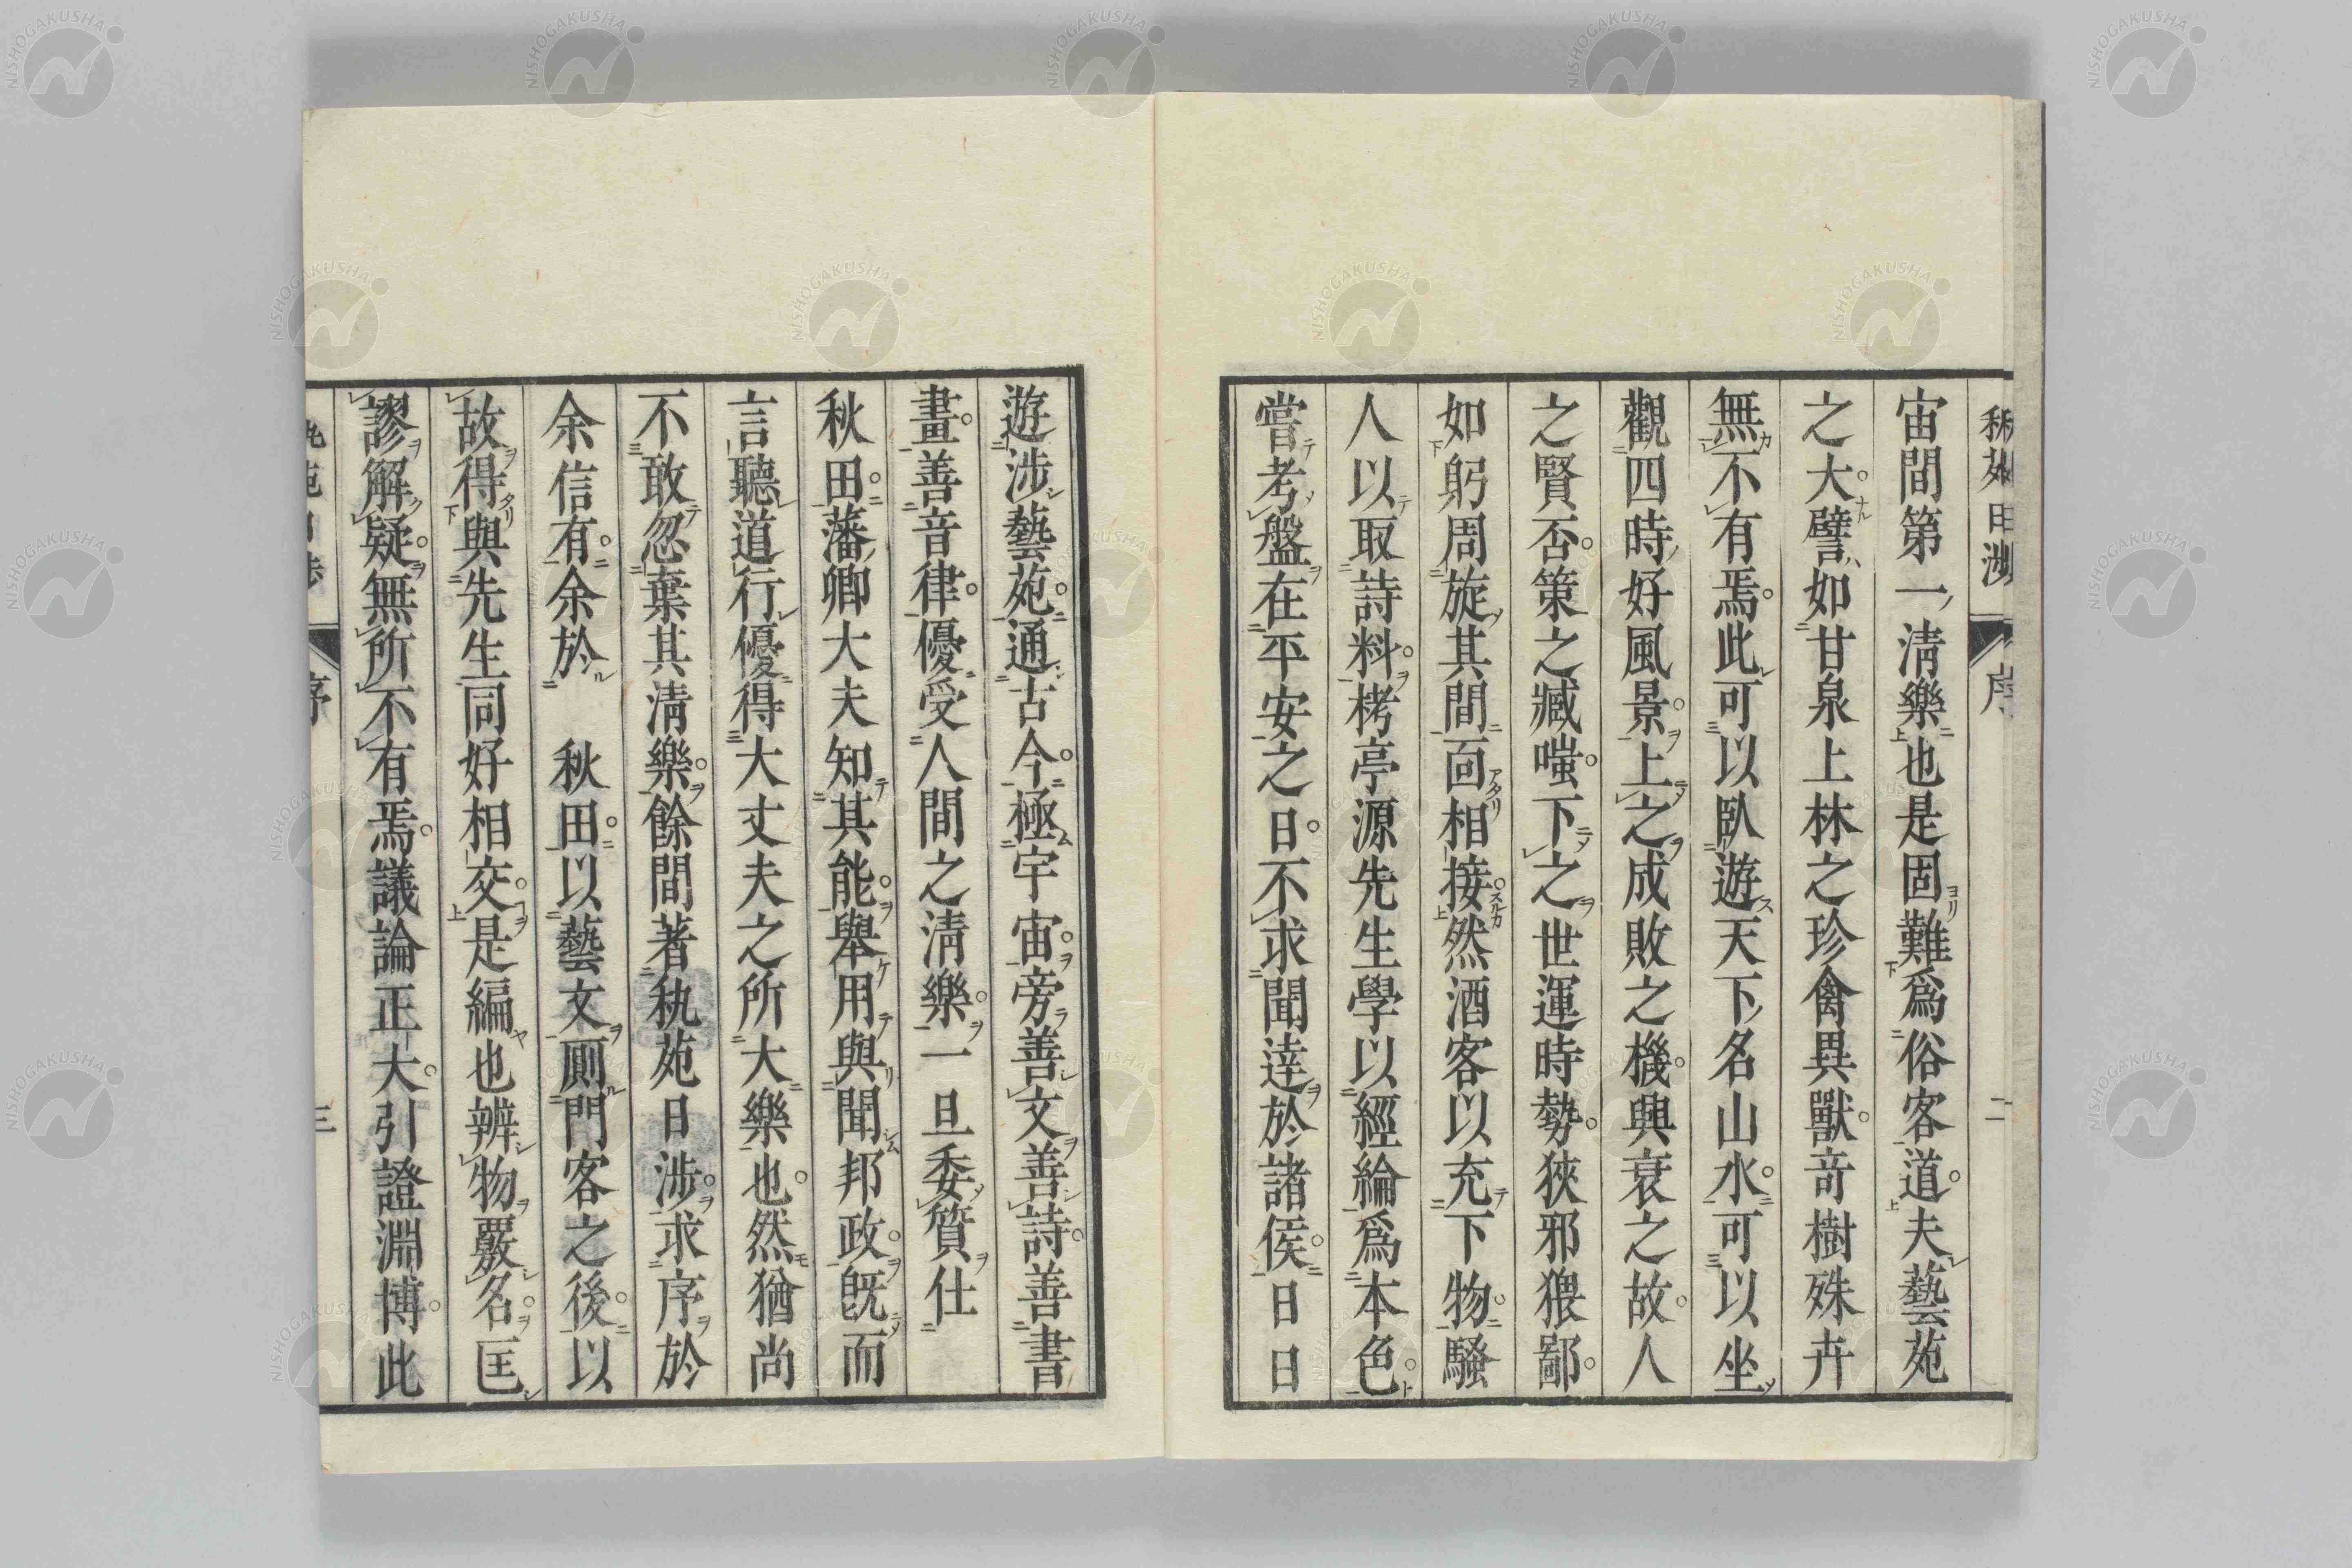 宙間第一清樂也是固難爲俗客道夫藝苑
之大譬如甘泉上林之珍禽異獸竒樹殊卉
無不有焉此可以臥遊天下名山水可以坐
觀四時好風景上之成敗之機興衰之故人
之賢否策之臧嗤下之世運時勢狹邪猥鄙
如躬周旋其間面相接然酒客以充下物騷
人以取詩料栲亭源先生學以經綸爲本色
嘗考盤在平安之日不求聞逹於諸侯日日
遊涉藝苑通古今極宇宙旁善文善詩善書
畫善音律優受人間之清樂一旦委質仕
秋田藩卿大夫知其能舉用與聞邦政旣而
言聽道行優得大丈夫之所大樂也然猶尚
不敢忽棄其清樂餘間著秇苑日涉求序於
余信有余於　秋田以藝文厠門客之後以
故得與先生同好相交是編也辨物覈名匡
謬解疑無所不有焉議論正大引證淵博此
秇苑日涉
序
二
三
NISHOGAKUSHA